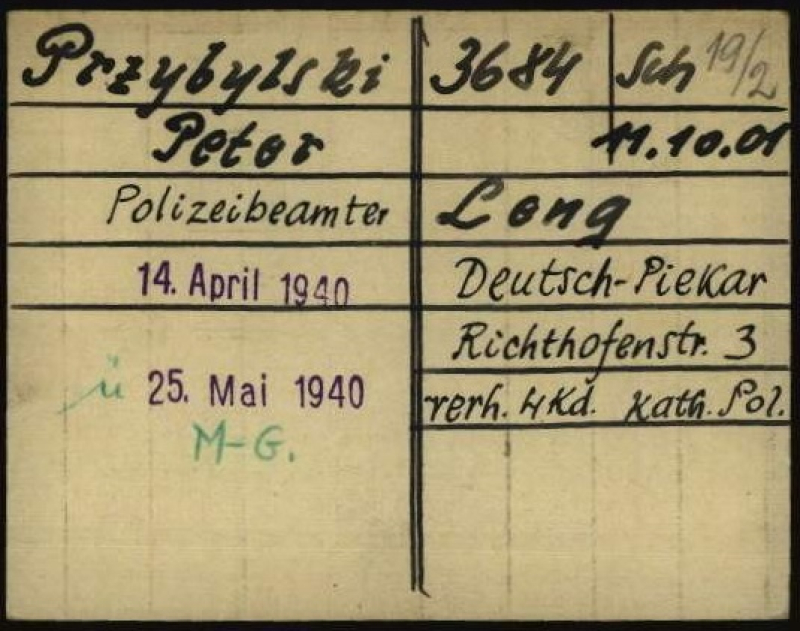 Przybylski 3684 Sch 19/2
Peter 11.10.01
Polizeibeamter Leng
14. April 1940 Deutsch-Piekar
Richthofenstr. 3
ü 25. Mai 1940 verh. 4 Kd. Kath. Pol.
M-G.